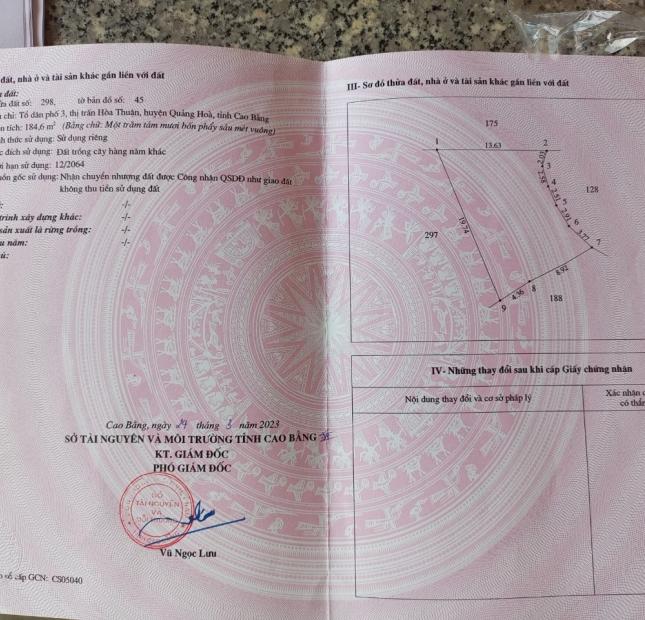 đất, nhà ở và tài sản khác gắn liền với đất
đất:
đất số: 298, tờ bản đồ số: 45
chỉ: Tổ dân phố 3, thị trấn Hòa Thuận, huyện Quảng Hoà, tỉnh Cao Bằng
tích: 184,6 m² (Bằng chữ: Một trăm tám mươi bốn phẩy sáu mét vuông)
thức sử dụng: Sử dụng riêng
đích sử dụng: Đất trồng cây hàng năm khác
hạn sử dụng: 12/2064
gốc sử dụng: Nhận chuyển nhượng đất được Công nhận QSDĐ như giao đất
không thu tiền sử dụng đất
-/-
trình xây dựng khác: -/-
sản xuất là rừng trồng: -/-
năm: -/-
Cao Bằng, ngày 24 tháng 3 năm 2023
SỞ TÀI NGUYÊN VÀ MÔI TRƯỜNG TỈNH CAO BẰNG
KT. GIÁM ĐỐC
PHÓ GIÁM ĐỐC
SỞ
TÀI NGUYÊN
VÀ
MÔI TRƯỜNG
Vũ Ngọc Lưu
số cấp GCN: CS05040
III- Sơ đồ thửa đất, nhà ở và tài sản khác gắn liền với đất
175
1 13.63 2
2.03
3
2.58
4
2.51
5
2.91
6
3.77
7
128
297
19.74
8.92
8
4.36
9
188
IV- Những thay đổi sau khi cấp Giấy chứng nhận
Nội dung thay đổi và cơ sở pháp lý
Xác nhận
có